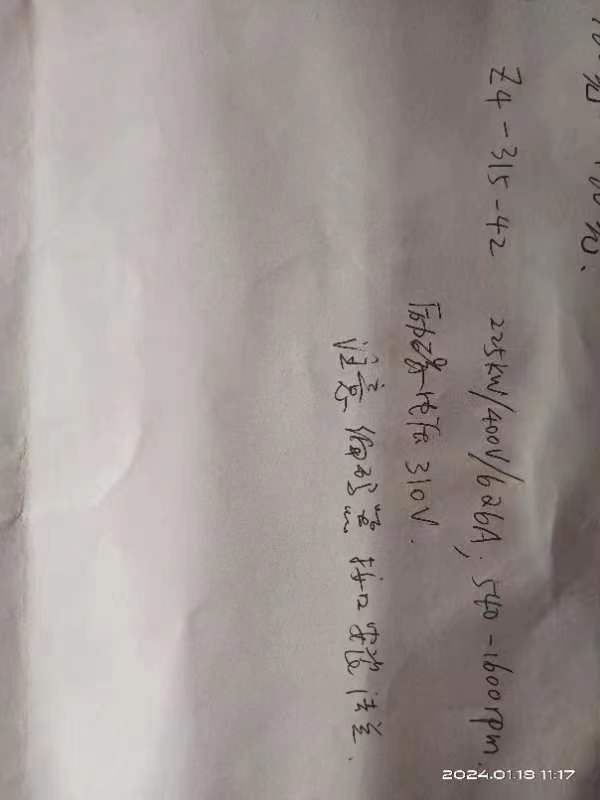 Z4-315-42 225kW/400V/626A, 540-1600rpm.
励磁电压310V.
注意编码器接口安装法兰.
2024.01.18 11:17